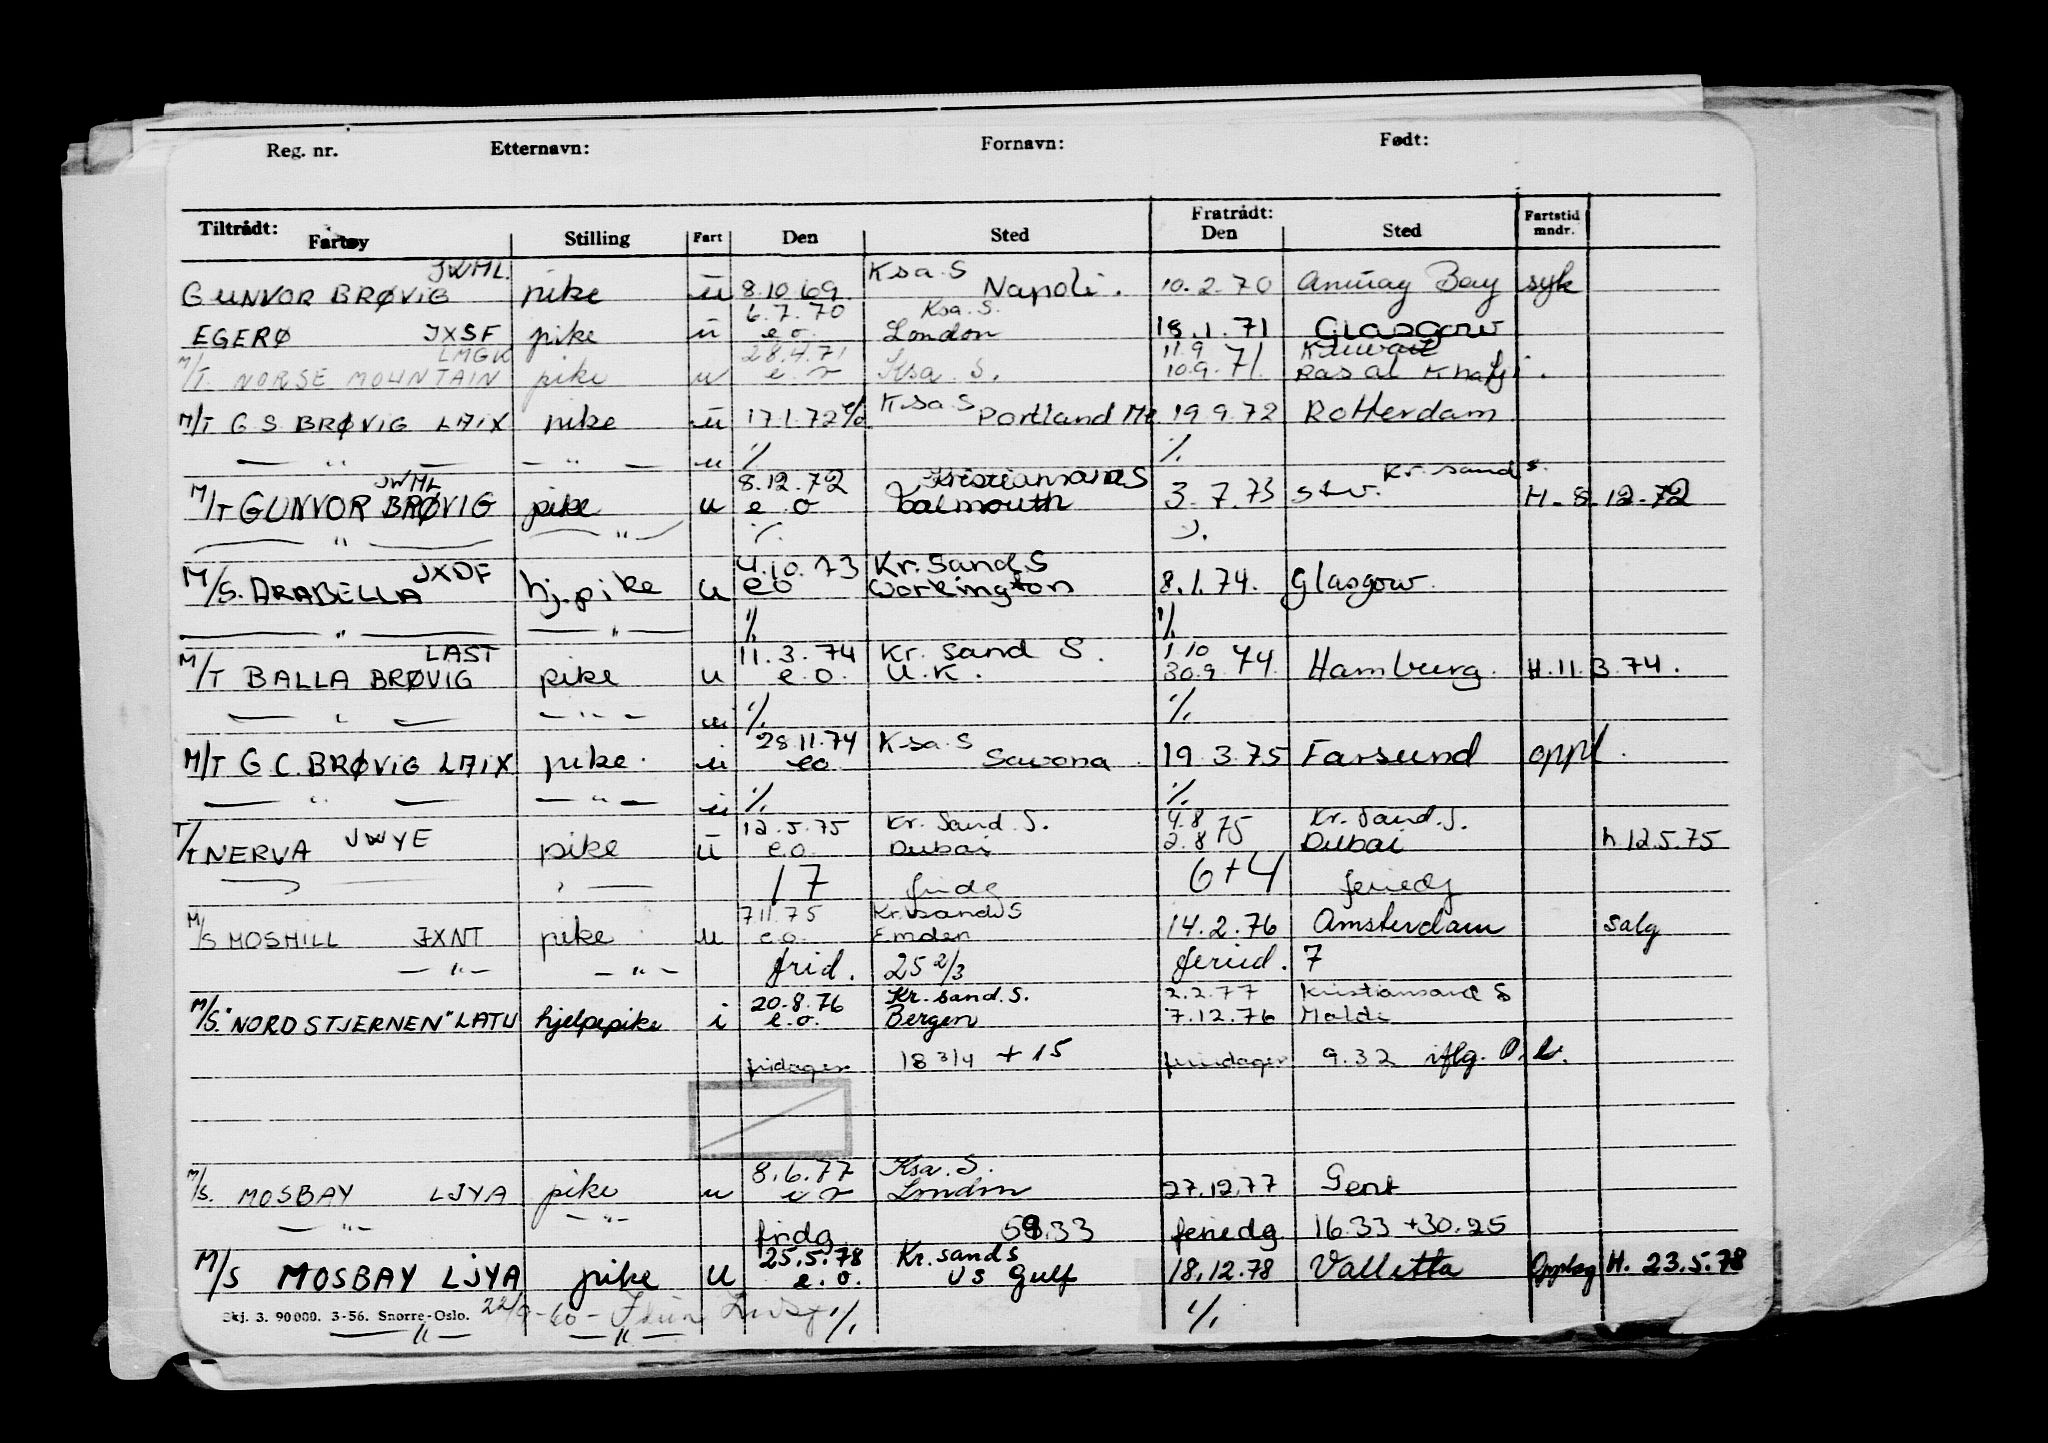 Reg. nr. Etternavn: Fornavn: Født:
Tiltrådt: Fratrådt: Fartstid
Fartøy Stilling Fart Den Sted Den Sted mndr.
JWML. Ksa. S
GUNVOR BRØVIG pike u 8.10.69 Napoli. 10.2.70 Amuay Bay syk
6.7.70 Ksa. S.
EGERØ JXSF pike u e.o. London 18.1.71 Glasgow
LMGK 28.4.71 11.9 Kuwait
M/T. NORSE MOUNTAIN pike u e.o Ksa. S. 10.9.71. Ras al Khafji.
Ksa S
M/T G S BRØVIG LAIX pike u 17.1.72 Portland Me. 19.9.72 Rotterdam
— " — — " — u ./. ./.
JWML 8.12.72 Kristiansand S Kr. sand S.
M/T GUNVOR BRØVIG pike u e o Falmouth 3.7.73 s.t.v. H. 8.12.72
— " — — " — ./.
JXDF 4.10.73 Kr. Sand S
M/S. ARABELLA hj.pike u eo Workington 8.1.74. Glasgow.
— " — — " — ./. ./.
LAST 11.3.74 Kr. Sand S. 1 10
M/T BALLA BRØVIG pike u e.o. U.K. 30.9 74 Hamburg. H.11.3.74.
— " — — " — u ./. ./.
28.11.74 Ksa. S
M/T G C. BRØVIG LAIX pike. u eo. Savona 19.3.75 Farsund oppl.
— " — — " — u ./. ./.
12.5.75 Kr. Sand. S. 4.8 Kr. Sand. S.
T/T NERVA JWYE pike u e.o. Dubai 2.8 75 Dubai h 12.5.75
" — 17 fridg 6+4 feriedg
7.11.75 Kr.sand S
M/S MOSHILL JXNT pike u e.o. Emden 14.2.76 Amsterdam salg
— " — — " — frid. 25 2/3 feried. 7
20.8.76 Kr. sand. S. 2.2.77 Kristiansand S
M/S. "NORDSTJERNEN" LATU hjelpepike i e.o. Bergen 7.12.76 Molde
fridager 18 3/4 + 15 feriedager 9.32 iflg.
8.6.77 Ksa. S.
M/S. MOSBAY LJYA pike u e o London 27.12.77 Gent
— " — — " — fridg 59.33 feriedg 16.33 + 30.25
25.5.78 Kr. sand S
M/S MOSBAY LJYA pike u e.o. US Gulf 18.12.78 Valletta Opplag H. 23.5.78
Skj. 3. 90 000. 3-56. Snorre-Oslo. ./. ./.
— " — — " —